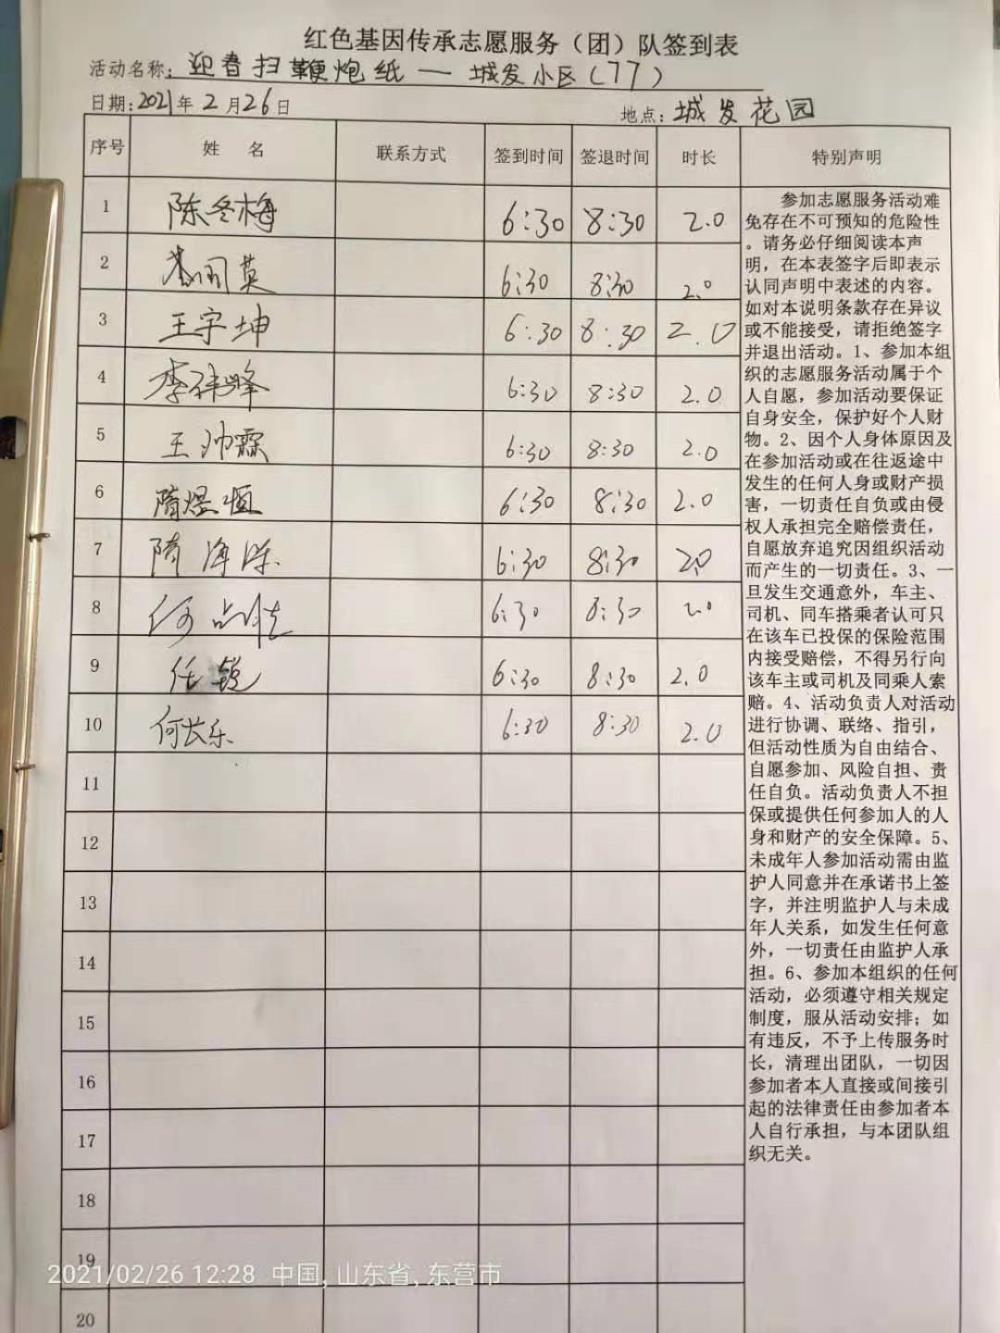 红色基因传承志愿服务（团）队签到表
活动名称：迎春扫鞭炮纸一城发小区（77）
日期：2021年2月26日 地点：城发花园
序号 姓 名 联系方式 签到时间 签退时间 时长 特别声明
1 陈冬梅 6:30 8:30 2.0
2 英 6:30 8:30 2.0
3 王宇坤 6:30 8:30 2.0
4 李祥峰 6:30 8:30 2.0
5 王帅霖 6:30 8:30 2.0
6 隋煜恒 6:30 8:30 2.0
7 隋海 6:30 8:30 2.0
8 何 6:30 8:30 2.0
9 任锐 6:30 8:30 2.0
10 何长乐 6:30 8:30 2.0
11
12
13
14
15
16
17
18
19
20
参加志愿服务活动难
免存在不可预知的危险性
。请务必仔细阅读本声
明，在本表签字后即表示
认同声明中表述的内容。
如对本说明条款存在异议
或不能接受，请拒绝签字
并退出活动。1、参加本组
织的志愿服务活动属于个
人自愿，参加活动要保证
自身安全，保护好个人财
物。2、因个人身体原因及
在参加活动或在往返途中
发生的任何人身或财产损
害，一切责任自负或由侵
权人承担完全赔偿责任，
自愿放弃追究因组织活动
而产生的一切责任。3、一
旦发生交通意外，车主、
司机、同车搭乘者认可只
在该车已投保的保险范围
内接受赔偿，不得另行向
该车主或司机及同乘人索
赔。4、活动负责人对活动
进行协调、联络、指引，
但活动性质为自由结合、
自愿参加、风险自担、责
任自负。活动负责人不担
保或提供任何参加人的人
身和财产的安全保障。5、
未成年人参加活动需由监
护人同意并在承诺书上签
字，并注明监护人与未成
年人关系，如发生任何意
外，一切责任由监护人承
担。6、参加本组织的任何
活动，必须遵守相关规定
制度，服从活动安排；如
有违反，不予上传服务时
长，清理出团队，一切因
参加者本人直接或间接引
起的法律责任由参加者本
人自行承担，与本团队组
织无关。
2021/02/26 12:28 中国, 山东省, 东营市